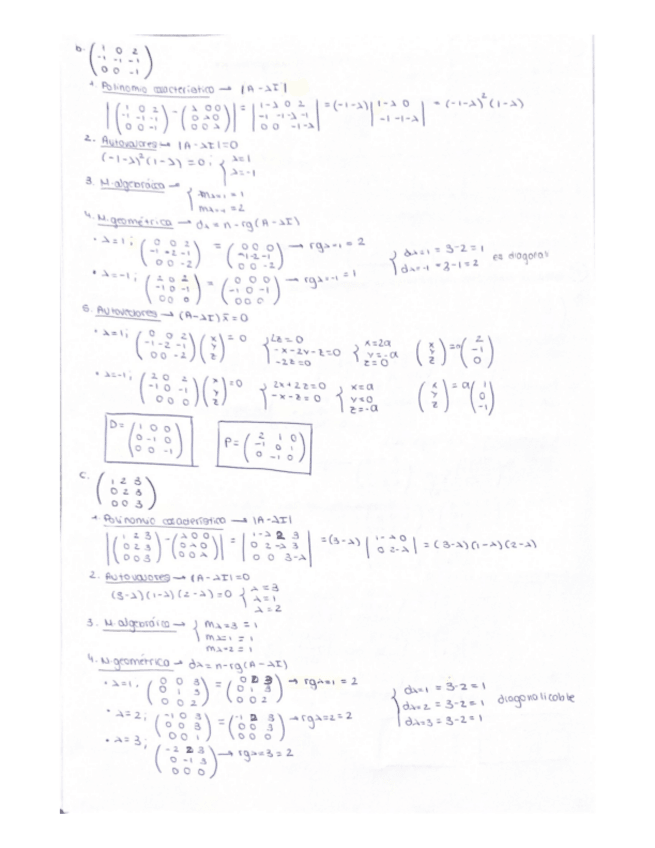 b. ( 1 0 2 / -1 -1 -1 / 0 0 -1 )
1. Polinomio característico → |A-λI|
|( 1 0 2 / -1 -1 -1 / 0 0 -1 ) - ( λ 0 0 / 0 λ 0 / 0 0 λ )| = | 1-λ 0 2 / -1 -1-λ -1 / 0 0 -1-λ | = (-1-λ) | 1-λ 0 / -1 -1-λ | = (-1-λ)² (1-λ)
2. Autovalores → |A-λI|=0
(-1-λ)² (1-λ) = 0; { λ=1 / λ=-1
3. M. algebráica → { mλ=1 = 1 / mλ=-1 = 2
4. M. geométrica → dλ = n-rg(A-λI)
• λ=1; ( 0 0 2 / -1 -2 -1 / 0 0 -2 ) = ( 0 0 0 / -1 -2 -1 / 0 0 -2 ) → rgλ=1 = 2 { dλ=1 = 3-2 = 1 / dλ=-1 = 3-1 = 2 es diagonali
• λ=-1; ( 2 0 2 / -1 0 -1 / 0 0 0 ) = ( 0 0 0 / -1 0 -1 / 0 0 0 ) → rgλ=-1 = 1
5. Autovectores → (A-λI)x̄=0
• λ=1; ( 0 0 2 / -1 -2 -1 / 0 0 -2 ) ( x / y / z ) = 0 { 2z=0 / -x-2y-z=0 / -2z=0 { x=2a / y=-a / z=0 ( x / y / z ) = a ( 2 / -1 / 0 )
• λ=-1; ( 2 0 2 / -1 0 -1 / 0 0 0 ) ( x / y / z ) = 0 { 2x+2z=0 / -x-z=0 { x=a / y=0 / z=-a ( x / y / z ) = a ( 1 / 0 / -1 )
D= ( 1 0 0 / 0 -1 0 / 0 0 -1 ) P= ( 2 1 0 / -1 0 1 / 0 -1 0 )
c. ( 1 2 3 / 0 2 3 / 0 0 3 )
1. Polinomio característico → |A-λI|
|( 1 2 3 / 0 2 3 / 0 0 3 ) - ( λ 0 0 / 0 λ 0 / 0 0 λ )| = | 1-λ 2 3 / 0 2-λ 3 / 0 0 3-λ | = (3-λ) | 1-λ 0 / 0 2-λ | = (3-λ)(1-λ)(2-λ)
2. Autovalores → |A-λI|=0
(3-λ)(1-λ)(2-λ)=0 { λ=3 / λ=1 / λ=2
3. M. algebráica → { mλ=3 = 1 / mλ=1 = 1 / mλ=2 = 1
4. M. geométrica → dλ = n-rg(A-λI)
• λ=1; ( 0 0 3 / 0 1 3 / 0 0 2 ) = ( 0 2 3 / 0 1 3 / 0 0 2 ) → rgλ=1 = 2 { dλ=1 = 3-2 = 1 / dλ=2 = 3-2 = 1 / dλ=3 = 3-2 = 1 diagonalizable
• λ=2; ( -1 0 3 / 0 0 3 / 0 0 1 ) = ( -1 2 3 / 0 0 3 / 0 0 0 ) → rgλ=2 = 2
• λ=3; ( -2 2 3 / 0 -1 3 / 0 0 0 ) → rgλ=3 = 2